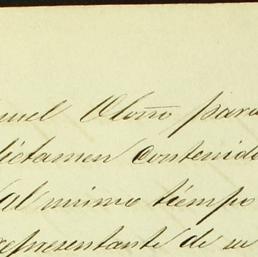 nuel Otoño para
dictamen contenido
al mismo tiempo
representante de su